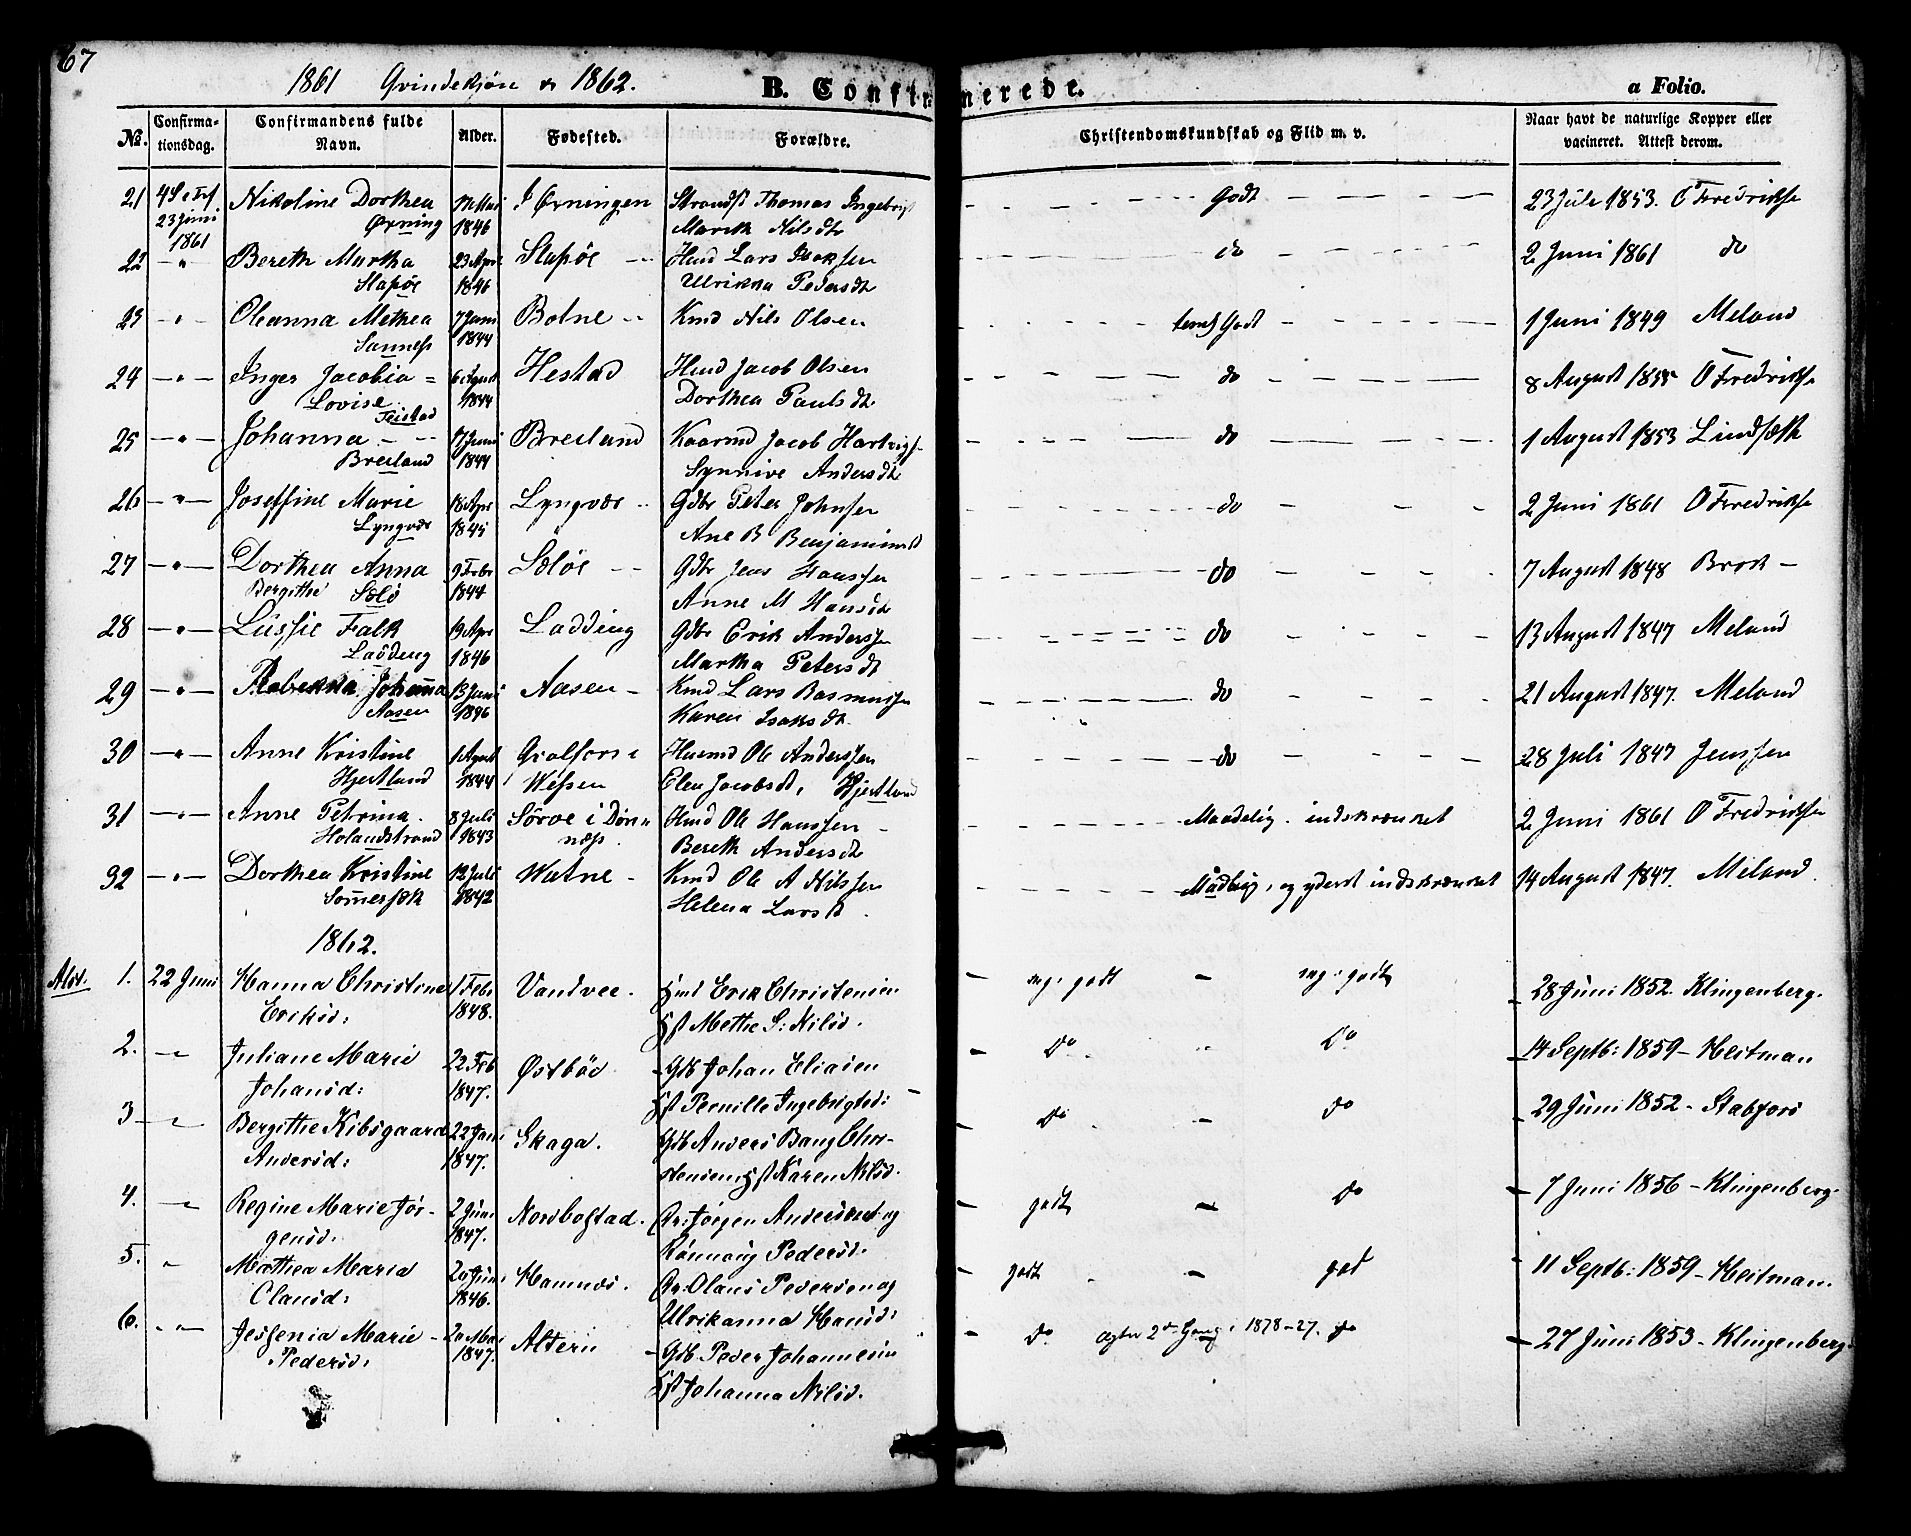 67
1861 Qvindekjøn & 1862. B. Confirmerede. a Folio.
No. Confirmationsdag. Confirmandens fulde Navn. Alder. Fødested. Forældre. Christendomskundskab og Flid m. v. Naar havt de naturlige Kopper eller vacineret. Attest derom.
21 23 Juni 1861 Nikoline Dorthea Ørning 1846 Ørningen Thomas Marith Nilsdtr Godt 23 Juli 1853. O Fredrikse
22 - " - Bereth Martha Slapøe 23 Apr 1846 Slapøe Lars Ulrikka Pedersdtr do 2 Juni 1861 do
23 - " - Oleanna Methea Sanness 7 Juni 1844 Botne Kmd Nils Olsen temlig Godt 1 Juni 1849 Meland
24 - " - Inger Jacobia = Lovise 6 August 1844 Hestad Husmd Jacob Olsen Dorthea Paulsdtr do 8 August 1855 O Fredrikse
25 - " - Johanna Breiland Juni 1844 Breiland Jacob Hartvigs Synnive Andersdtr do 1 August 1853 Lindsæth
26 - " - Joseffine Marie Lyngvær 18 Apr 1845 Lyngvær Gdbr Peter Johnsen Ane B Benjaminsdt do 2 Juni 1861 O Fredrikse
27 - " - Dorthea Anna Bergithe Sølø 9 Febr 1844 Søløe Gdbr Jens Hanssen Anne M Hansdt do 7 August 1848 Brok -
28 - " - Lussie Falk Ladding 19 Apr 1846 Ladding Gdbr Erik Anderssen Martha Petersdt do 13 August 1847 Meland
29 - " - Rebekka Johanna Aasen 13 Juni 1846 Aasen - Kmd Lars Rasmussen Karen Isaksdt. do 21 August 1847. Meland
30 - " - Anne Kristine Hjertland 1 August 1844 i Wefsen Husmd Ole Anderssen Elen Jacobsdt, Hjertland do 28 Juli 1847 Jenssen
31 - " - Anne Petrina Holandstrand 8 Juli 1843 Sørøe i Dønnæss. Hmd Ole Hanssen Bereth Andersdt Maadelig. indskrænket 2 Juni 1861 O Fredrikse
32 - " - Dorthea Kristine Sømersæth 12 Juli 1842 Watne - Kmd Ole A Nilssen Helena Larsdt. Maadelig, og yderst indskrænket 14 August 1847. Meland.
1862.
Alst: 1. 22 Juni Hanna Christine Eriksd: 1 Febr 1848. Vandvee. Hmd Erik Christensen Hst Methe S: Nilsd. mg: godt - mg: godt 28 Juni 1852. Klingenberg.
2. " Juliane Marie Johansd: 22 Feb 1847. Østbød Gdb Johan Eliasen Hst Pernille Ingebrigtsd: Do Do 14 Septb: 1859 - Heitman
3 " Bergithe Kibsgaard Andersd: 22 Jan 1847. Skaga. Gdb Anders Bang Christensen Hst Karen Nilsd. Do - Do 29 Juni 1852 - Stabfors
4. " Regine Marie Jørgensd. 2 Juni 1847. Nordbostad. Gr: Jørgen Andersen og Rønnaug Pedersd. godt - Do 7 Juni 1856 - Klingenberg.
5. " Mathea Maria Olausd: 1846. Hamnes. Gr: Olaus Pedersen og Ulrikanna Hansd: godt - god 11 Septb: 1859 - Heitman.
6. " Jessenia Marie Pedersd: 20 Mai 1847. Altern Gdb Peder Johannesen Hst Johanna Nilsd. Do. 2den Gang 1878 - 27. Do 27 Juni 1853 - Klingenberg.